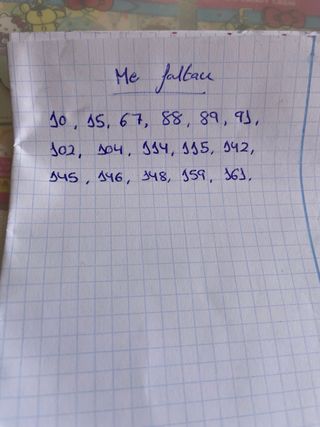 Me faltan
10, 15, 67, 88, 89, 91,
102, 104, 114, 115, 142,
145, 146, 148, 159, 161.